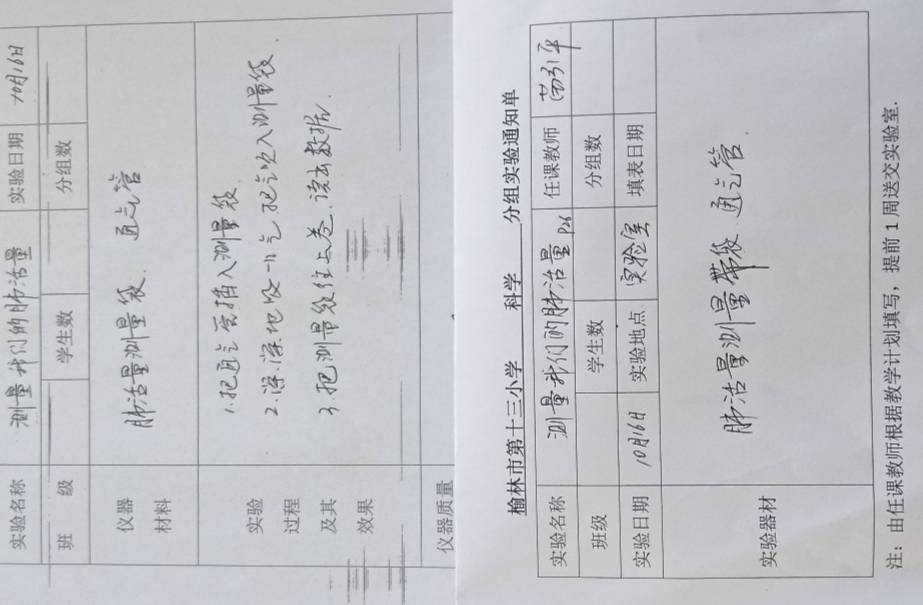 实验名称 测量我们的肺活量 实验日期 10月16日
班 级 学生数 分组数
仪器
材料
肺活量测量袋. 通气管
实验
过程
及其
效果
1.把通气管插入测量袋
2.深深地吸一口气 把气吹入测量袋.
3.把测量袋往上卷.读出数据.
仪器质量
榆林市第十三小学 科学 分组实验通知单
实验名称 测量我们的肺活量 P26 任课教师
班级 学生数 分组数
实验日期 10月16日 实验地点 实验室 填表日期
实验器材 肺活量测量带袋 通气管.
注：由任课教师根据教学计划填写，提前1周送交实验室.